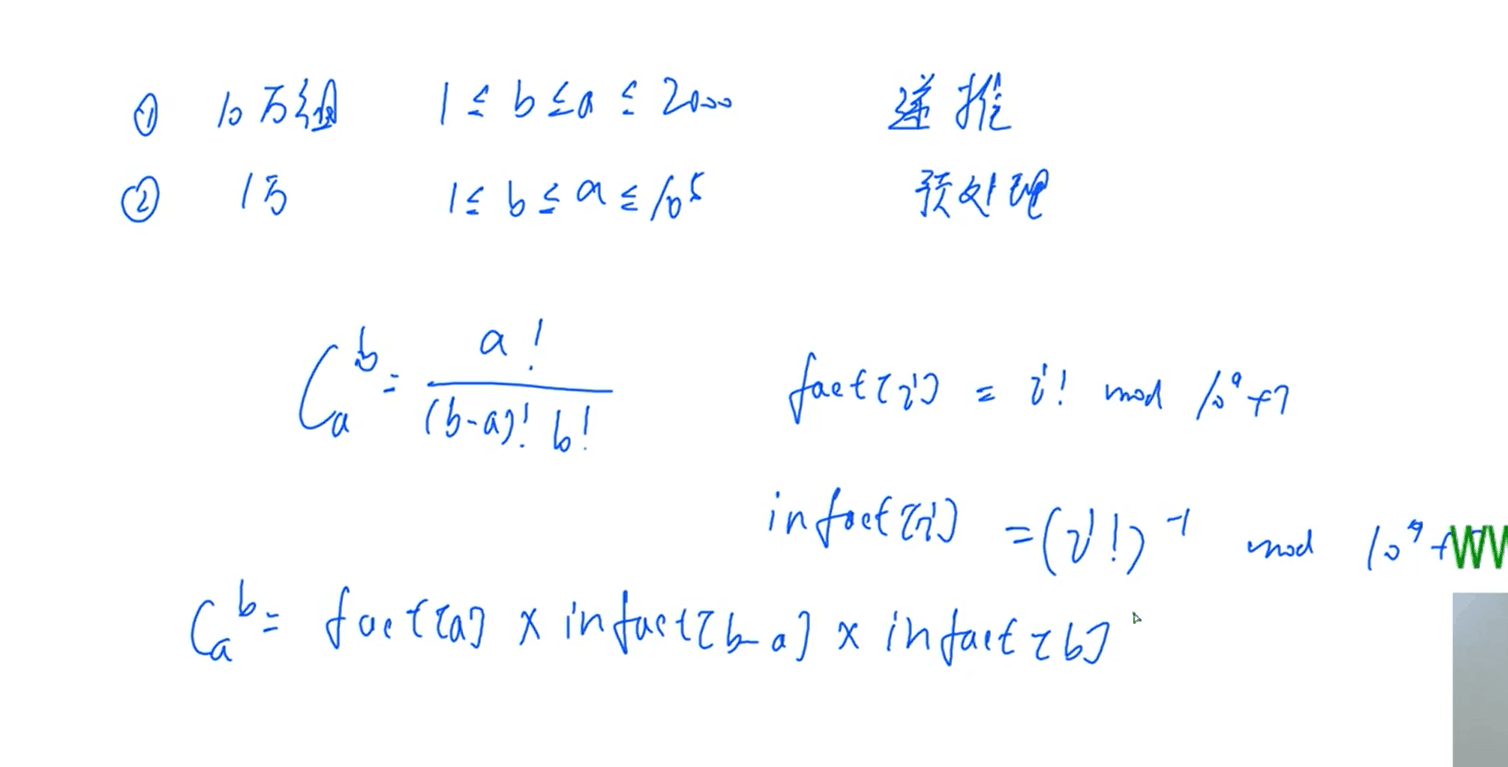 ① 10万组 1≤b≤a≤2000 递推
② 1万 1≤b≤a≤10^5 预处理
C_a^b = a! / (b-a)! b!
fact[i] = i! mod 10^9+7
infact[i] = (i!)^-1 mod 10^9+
C_a^b = fact[a] × infact[b-a] × infact[b]